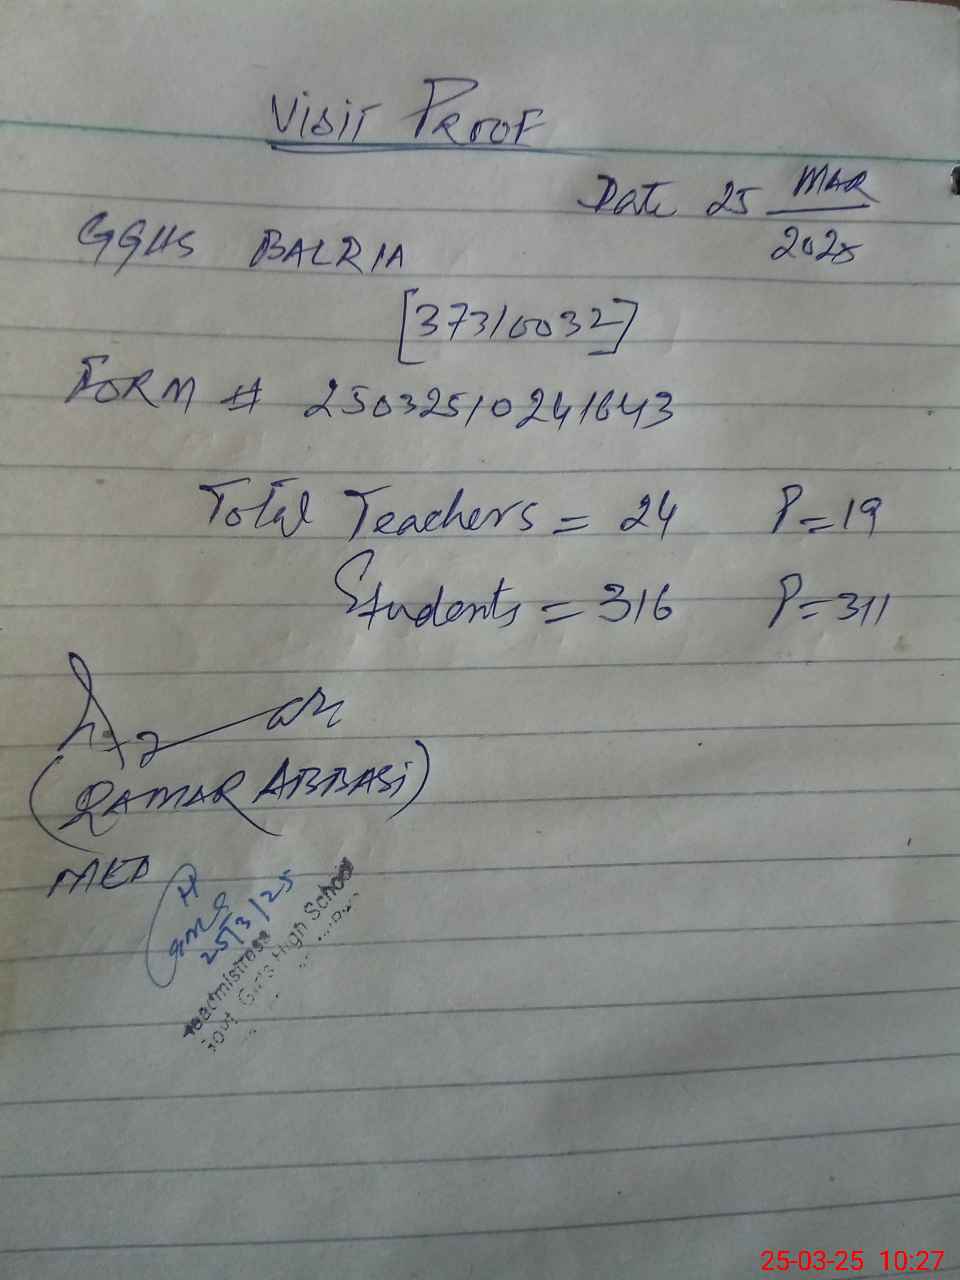 Visit Proof
Date 25 MAR
2025
GGHS BALRIA
[37310032]
FORM # 25032510241643
Total Teachers = 24 P=19
Students = 316 P=311
(QAMAR ABBASI)
25/3/25
Headmistress
Govt. Girls High School
25-03-25 10:27